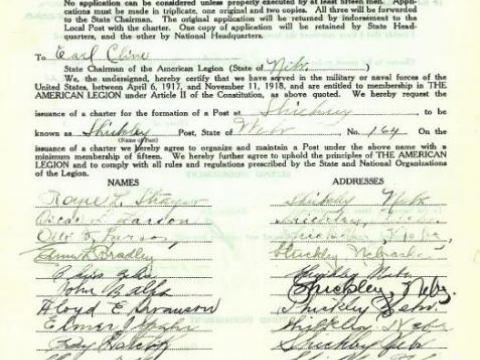 No application can be considered unless properly executed by at least fifteen men. Appli-
cations must be made in triplicate, one original and two copies. All three will be forwarded
to the State Chairman. The original application will be returned by indorsement to the
Local Post with the charter. One copy of application will be retained by State Head-
quarters, and the other by National Headquarters.
To Earl Cline
State Chairman of the American Legion (State of Nebr )
We, the undersigned, hereby certify that we have served in the military or naval forces of the
United States, between April 6, 1917, and November 11, 1918, and are entitled to membership in THE
AMERICAN LEGION under Article II of the Constitution, as above quoted. We hereby request the
issuance of a charter for the formation of a Post at Shickley
known as Shickley Post, State of Nebr No. 164 On the
(Name of Post)
issuance of charter we hereby agree to organize and maintain a Post under the above name with a
minimum membership of fifteen. We hereby further agree to uphold the principles of THE AMERICAN
LEGION and to comply with all rules and regulations prescribed by the State and National Organizations
of the Legion.
NAMES ADDRESSES
L. Shickley Nebr
Larson
Otto B. Larson
Bradley Shickley Nebraska
Shickley Nebr
John Shickley, Nebr.
Floyd E Swanson Shickley Nebr.
Elmer Shickley Nebr
Shickley Nebr